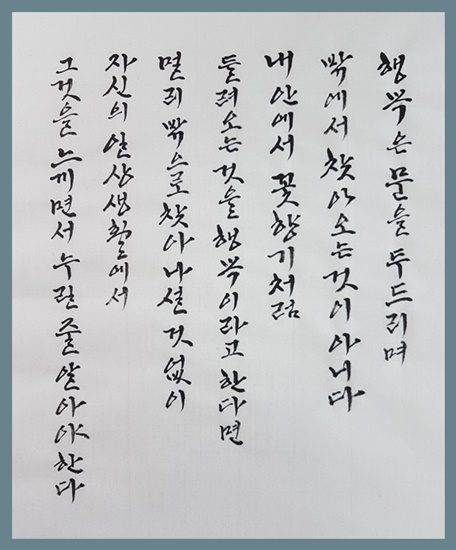 행복은 문을 두드리며
밖에서 찾아오는 것이 아니다
내 안에서 꽃향기처럼
들려오는 것을 행복이라고 한다면
멀리 밖으로 찾아 나설 것 없이
자신의 일상생활에서
그것을 느끼면서 누릴 줄 알아야 한다